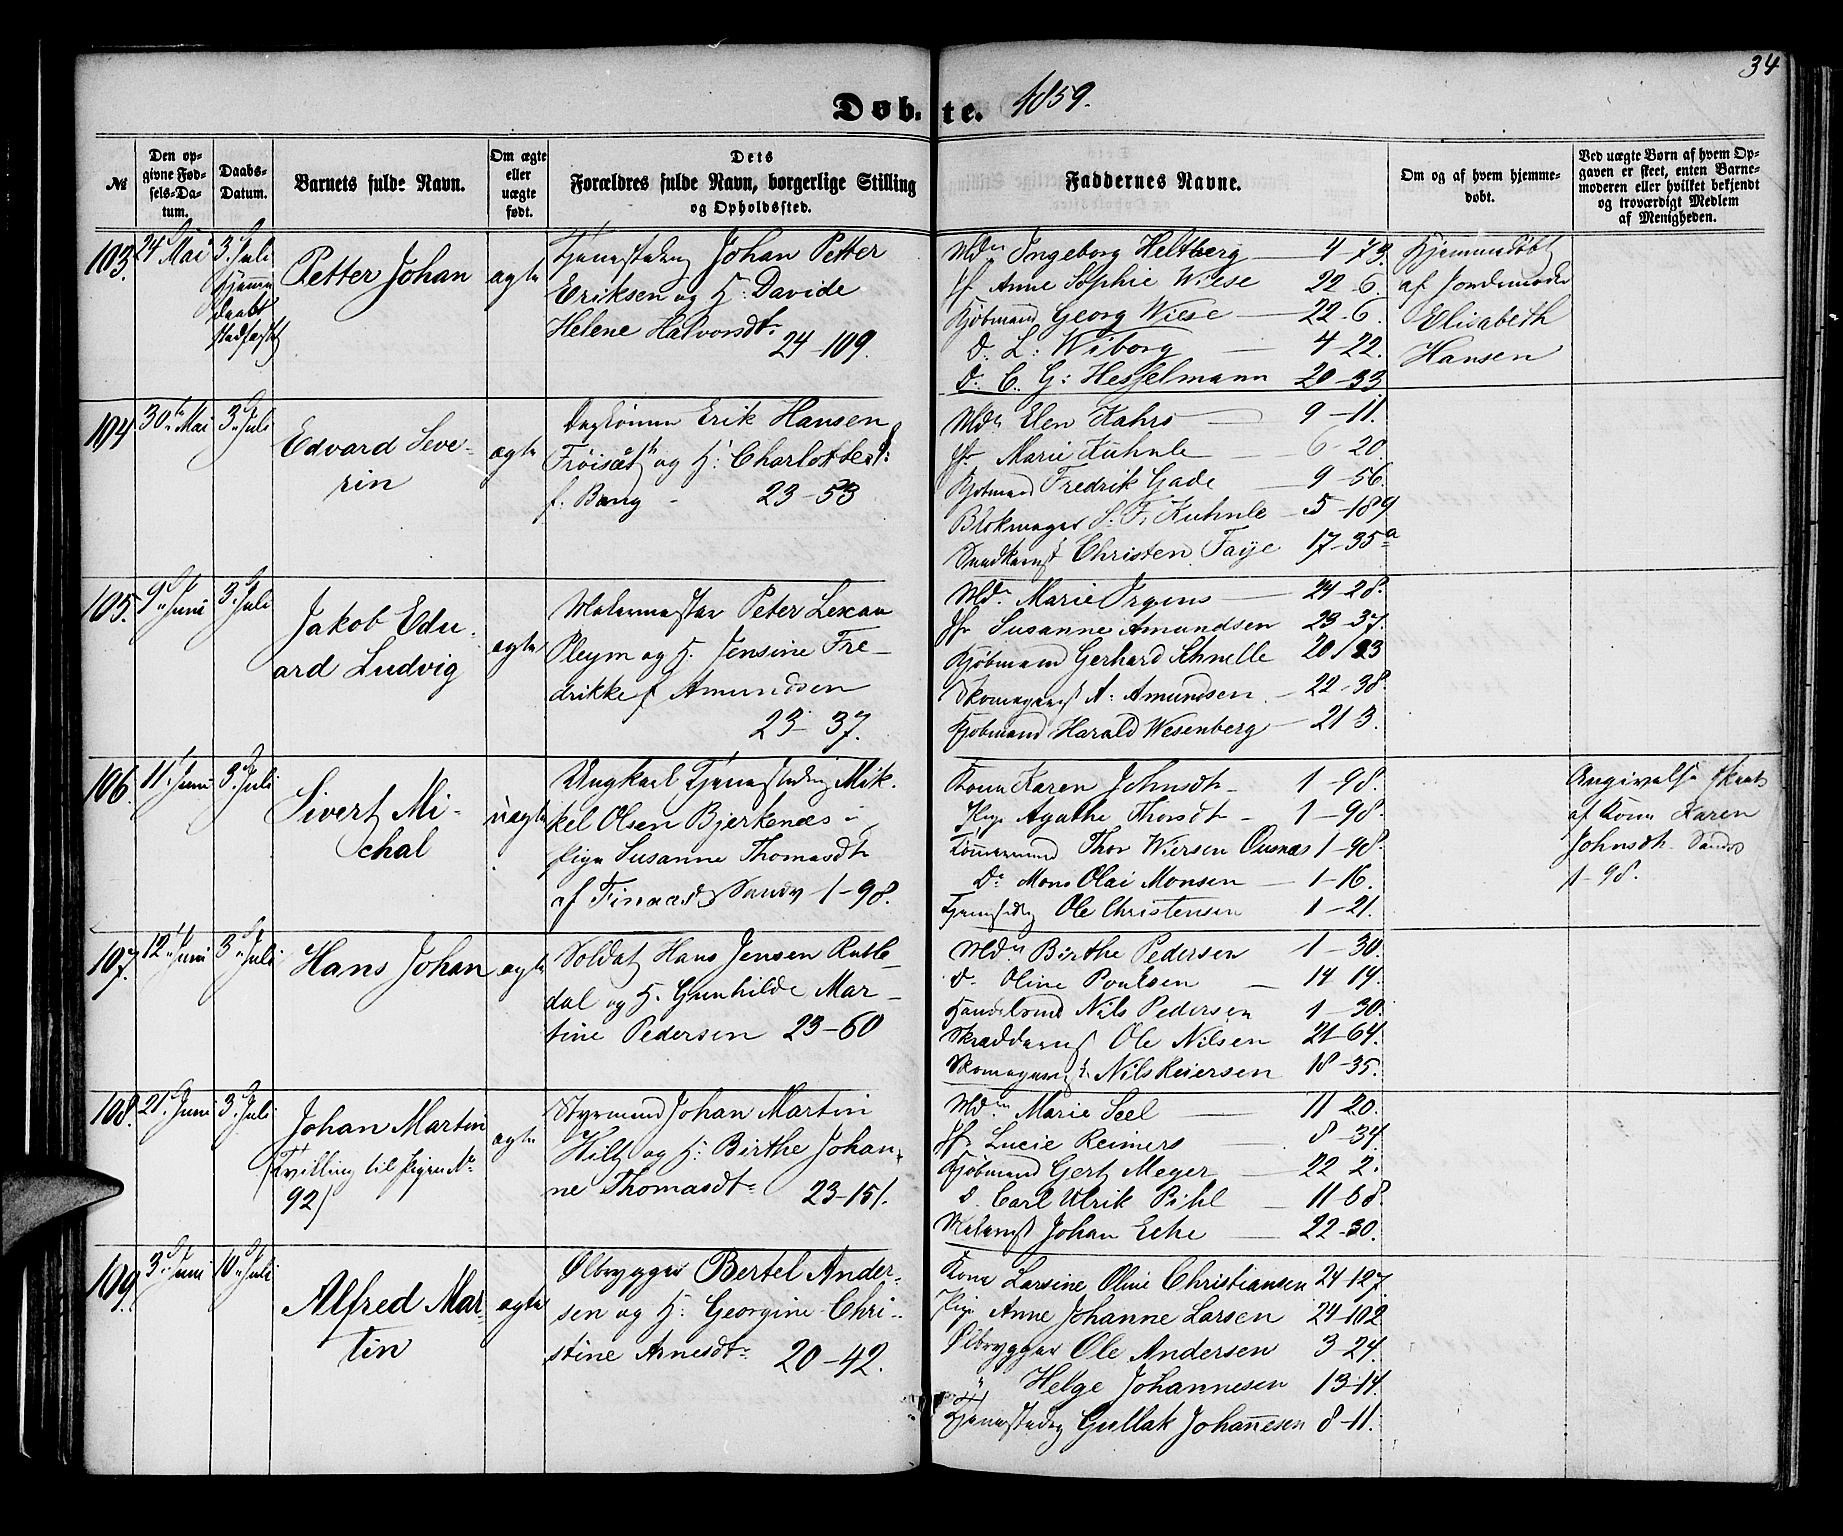 34
Døbte. 1859.
№
Den op-
givne Fød-
sels-Da-
tum.
Daabs-
Datum.
Barnets fulde Navn.
Om ægte
eller
uægte
født.
Dets
Forældres fulde Navn, borgerlige Stilling
og Opholdssted.
Faddernes Navne.
Om og af hvem hjemme-
døbt.
Ved uægte Børn af hvem Op-
gaven er skeet, enten Barne-
moderen eller hvilket bekjendt
og troværdigt Medlem
af Menigheden.
103. 24 Mai 3. Juli
Hjemme
daabt
stadfæstet
Petter Johan
ægte
Tjenestedreng Johan Petter
Eriksen og H: Davide
Helene Halvorsdtr
24-109.
Md. Ingeborg Heltberg 4-73.
Jfr Anne Sophie Wiese 22-6.
Kjøbmand Georg Wiese 22-6.
D. L: Wiborg 4-22.
D. C. G: Hesselmann 20-33
Hjemmedøbt
af Jordemoder
Elisabeth
Hansen
104 30te Mai 3. Juli
Edvard Seve-
rin
ægte
Erik Hansen
Frøisæt og H: Charlotte
f. Bang 23-53
Md. Elen Kahrs 9-11.
Jfr Marie Kuhnle 6-20
Kjøbmand Fredrik Gade 9-56.
Blokmager S. F. Kuhnle 5-189
Christen Faye 17-35a
105. 9. Juni 3. Juli
Jakob Edu-
ard Ludvig
ægte
Malermester Peter Lexau
Pleym og H. Jensine Fre-
drikke f Amundsen
23-37.
Md. Marie Irgens 24-28.
Jfr Susanne Amundsen 23-37.
Kjøbmand Gerhard Schnelle 20/23
Skomagerst A. Amundsen 22-38.
Kjøbmand Harald Wesenberg 21-3.
106. 11. Juni 3. Juli
Sivert Mi-
chal
uægte
Ungkarl Tjenestedreng Mik-
kel Olsen Bjerkenæs
Pige Susanne Thomasdtr
af Finaas Sandv 1-98.
Kone Karen Johnsdtr 1-98.
Pige Agathe Thorsdt 1-98.
Tømmermand Thor Wiersen Ousnæs 1-98.
D. Mons Olai Monsen 1-16.
Tjenestedreng Ole Christensen 1-21.
Angivelse skeet
af Kone Karen
Johnsdtr
1-98.
107. 12. Juni 3. Juli
Hans Johan
ægte
Soldat Hans Jensen Rutle-
dal og H. Gunhilde Mar-
tine Pedersen 23-60
Md. Birthe Pedersen 1-30.
D. Oline Poulsen 14-14.
Nils Pedersen 1-30.
Skræddersv Ole Nilsen 21-64.
Skomagersv Nils Reiersen 18-35.
108. 21. Juni 3. Juli
Johan Martin
(Tvilling til Pigen No
92)
ægte
Styrmand Johan Martin
Hilt og H: Birthe Johan-
ne Thomasdtr 23-151.
Md. Marie Seel 11-20.
Jfr Lucie Reimers 8-34.
Kjøbmand Gert Meyer 22-2.
D. Carl Ulrik Pihl 11-68.
Malersv Johan Eche 22-30.
109. 3. Juni 10. Juli
Alfred Mar-
tin
ægte
Ølbrygger Bertel Ander-
sen og H: Georgine Chri-
stine Arnesdtr 20-42.
Kone Larsine Oline Christiansen 24-127.
Pige Anne Johanne Larsen 24-102
Ølbrygger Ole Andersen 3-24.
" Helge Johannesen 13-14.
Tjenestedreng Gullak Johannesen 8-11.